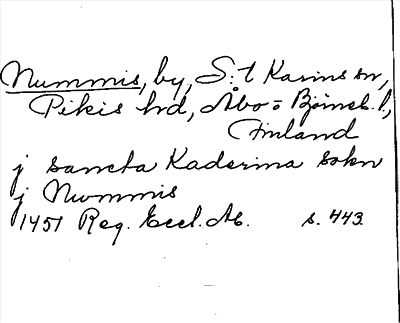 Nummis, by, S:t Karins sn,
Pikis hd, Åbo = Björneb. l,
Finland
j sancta Kaderina sokn
j Nwmmis
1451 Reg. Eccl. Ab. s. 443.